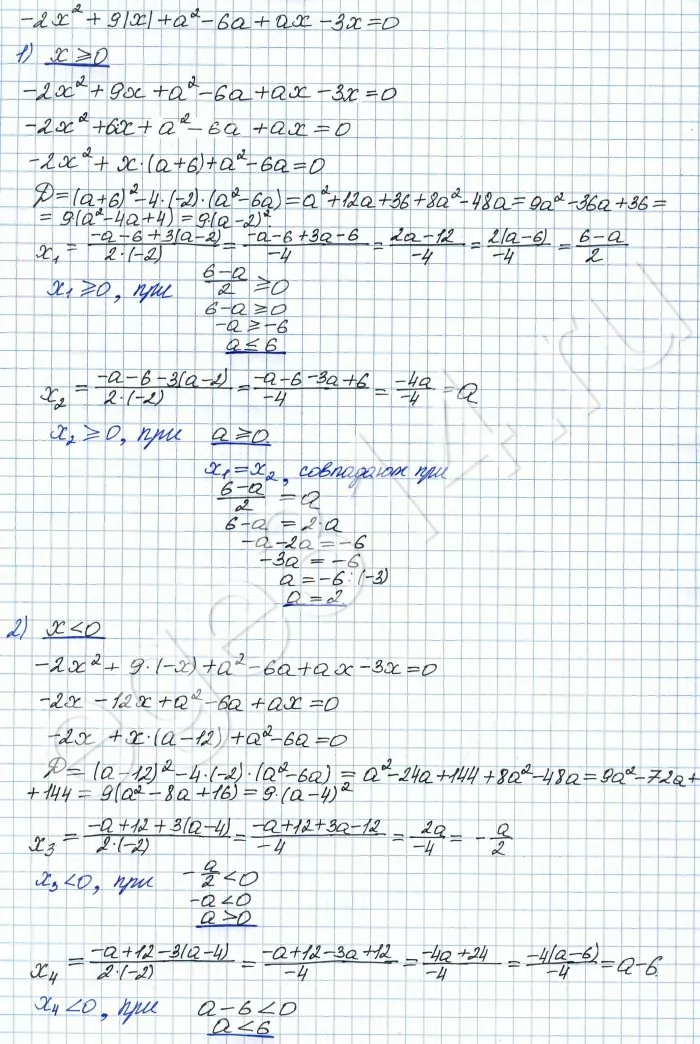 -2x² + 9|x| + a² - 6a + ax - 3x = 0
1) x ≥ 0
-2x² + 9x + a² - 6a + ax - 3x = 0
-2x² + 6x + a² - 6a + ax = 0
-2x² + x·(a+6) + a² - 6a = 0
D = (a+6)² - 4·(-2)·(a² - 6a) = a² + 12a + 36 + 8a² - 48a = 9a² - 36a + 36 =
= 9(a² - 4a + 4) = 9(a-2)²
x₁ = (-a-6+3(a-2))/(2·(-2)) = (-a-6+3a-6)/(-4) = (2a-12)/(-4) = (2(a-6))/(-4) = (6-a)/2
x₁ ≥ 0, при (6-a)/2 ≥ 0
6-a ≥ 0
-a ≥ -6
a ≤ 6
x₂ = (-a-6-3(a-2))/(2·(-2)) = (-a-6-3a+6)/(-4) = (-4a)/(-4) = a
x₂ ≥ 0, при a ≥ 0
x₁ = x₂, совпадают при
(6-a)/2 = a
6-a = 2·a
-a-2a = -6
-3a = -6
a = -6:(-3)
a = 2
2) x < 0
-2x² + 9·(-x) + a² - 6a + ax - 3x = 0
-2x - 12x + a² - 6a + ax = 0
-2x + x·(a-12) + a² - 6a = 0
D = (a-12)² - 4·(-2)·(a² - 6a) = a² - 24a + 144 + 8a² - 48a = 9a² - 72a +
+ 144 = 9(a² - 8a + 16) = 9·(a-4)²
x₃ = (-a+12+3(a-4))/(2·(-2)) = (-a+12+3a-12)/(-4) = 2a/(-4) = -a/2
x₃ < 0, при -a/2 < 0
-a < 0
a > 0
x₄ = (-a+12-3(a-4))/(2·(-2)) = (-a+12-3a+12)/(-4) = (-4a+24)/(-4) = (-4(a-6))/(-4) = a-6
x₄ < 0, при a-6 < 0
a < 6